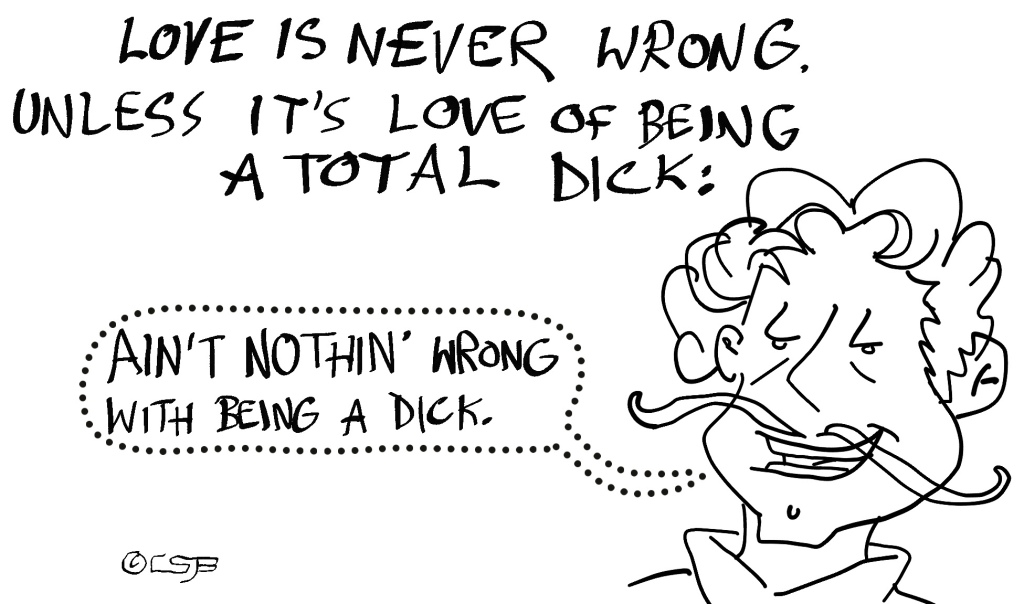 LOVE IS NEVER WRONG.
UNLESS IT'S LOVE OF BEING
A TOTAL DICK:
AIN'T NOTHIN' WRONG
WITH BEING A DICK.
©CSB